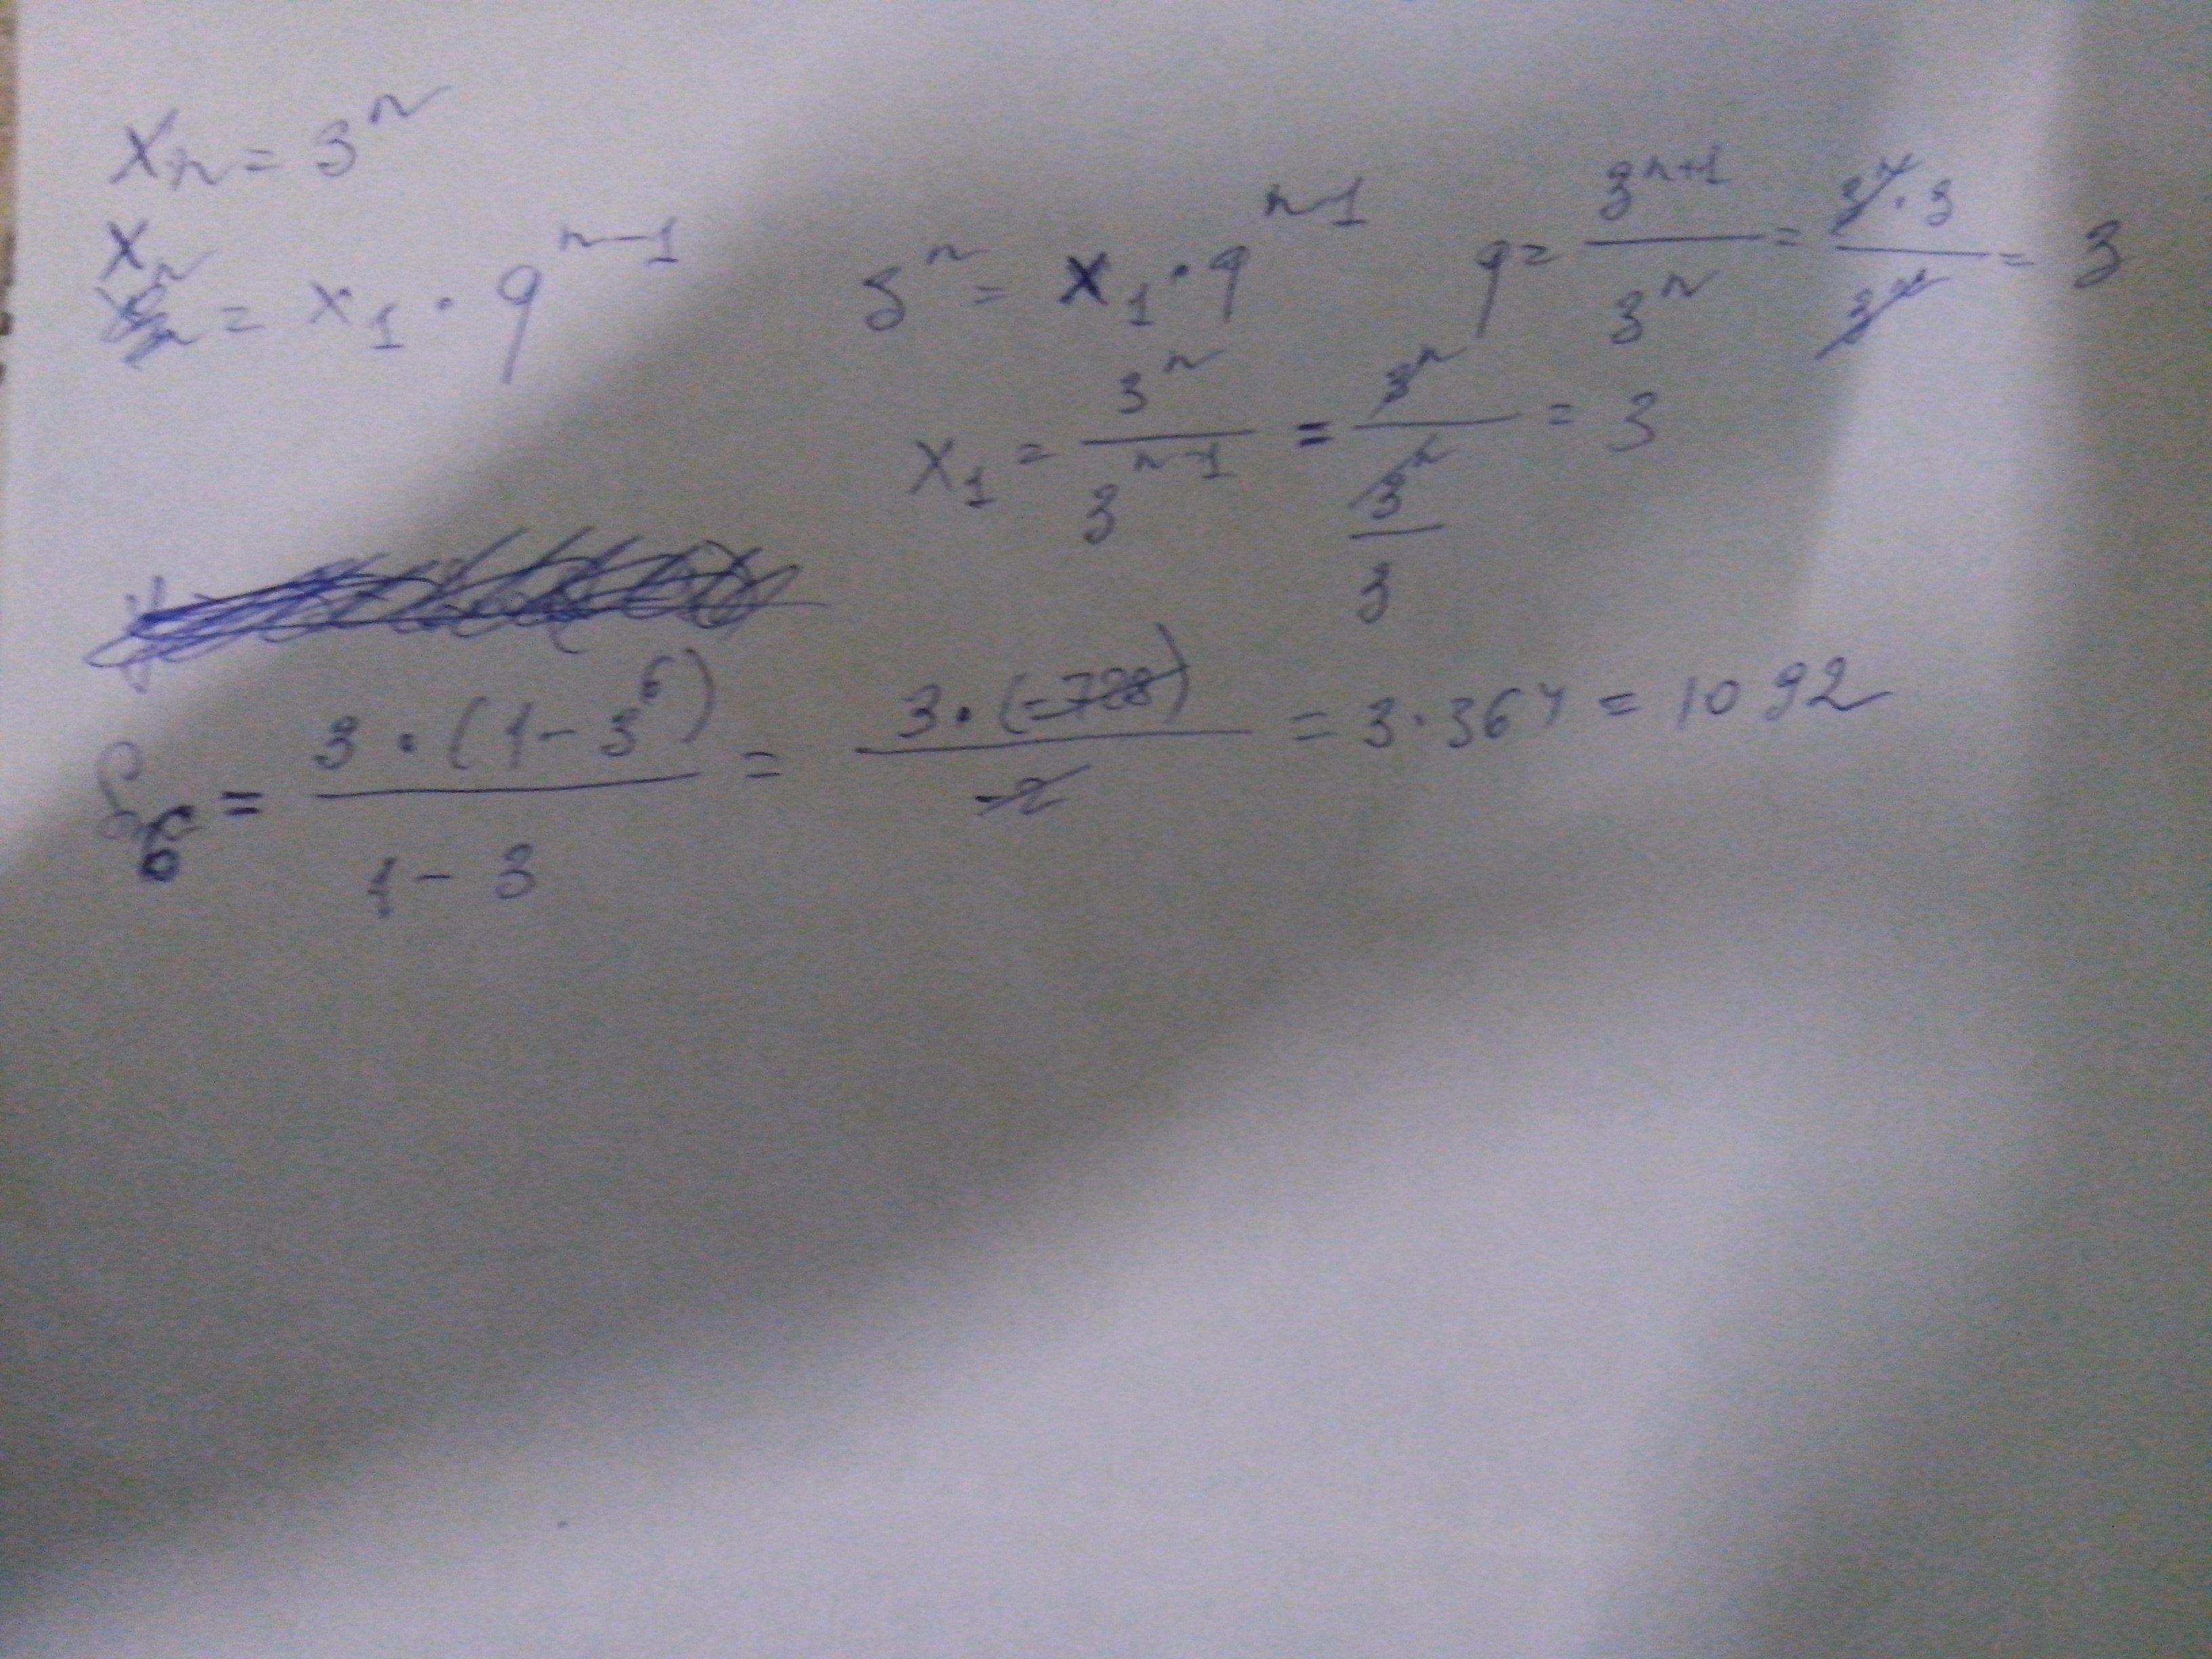 xₙ = 3ⁿ
xₙ = x₁ · qⁿ⁻¹
3ⁿ = x₁ · qⁿ⁻¹ q = 3ⁿ⁺¹ / 3ⁿ = 3ⁿ · 3 / 3ⁿ = 3
x₁ = 3ⁿ / 3ⁿ⁻¹ = 3ⁿ / (3ⁿ / 3) = 3
S₆ = 3 · (1 - 3⁶) / (1 - 3) = 3 · (-728) / -2 = 3 · 364 = 1092